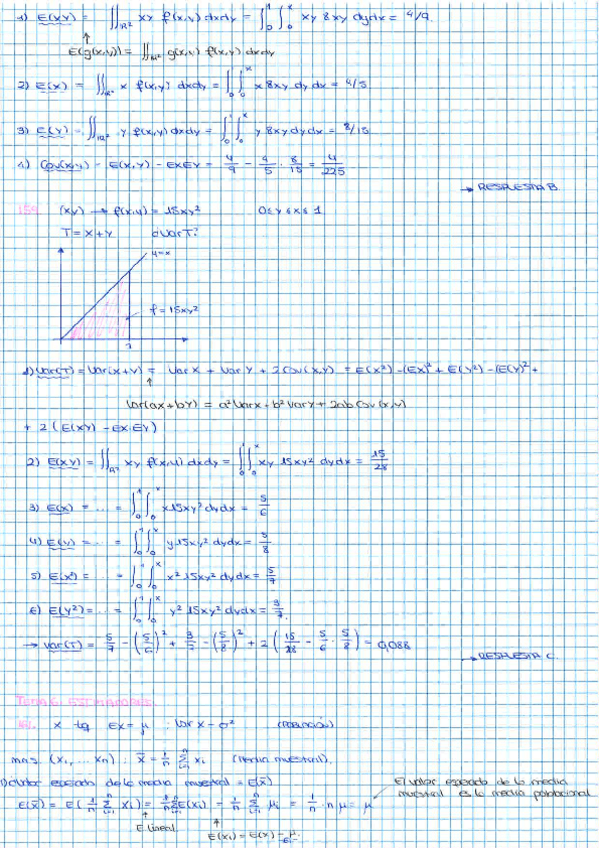 1) E(XY) = ∬_{ℝ²} xy f(x,y) dxdy = ∫₀¹∫₀ˣ xy 8xy dydx = 4/9.
E(g(x,y)) = ∬_{ℝ²} g(x,y) f(x,y) dxdy
2) E(X) = ∬_{ℝ²} x f(x,y) dxdy = ∫₀¹∫₀ˣ x 8xy dy dx = 4/5
3) E(Y) = ∬_{ℝ²} y f(x,y) dxdy = ∫₀¹∫₀ˣ y 8xy dydx = 8/15
4) Cov(x,y) = E(x,y) - EXEY = 4/9 - 4/5 · 8/15 = 4/225
→ RESPUESTA B.
(x,y) → f(x,y) = 15xy² 0≤y≤x≤1
T = X+Y ¿Var T?
y=x
f = 15xy²
1
1) Var(T) = Var(X+Y) = Var X + Var Y + 2Cov(X,Y) = E(X²) - (EX)² + E(Y²) - (EY)² +
Var(aX+bY) = a²VarX + b²VarY + 2ab Cov(X,Y)
+ 2 (E(XY) - EX·EY)
2) E(XY) = ∬_{ℝ²} xy f(x,y) dxdy = ∫₀¹∫₀ˣ xy 15xy² dydx = 15/28
3) E(X) = ... = ∫₀¹∫₀ˣ x 15xy² dydx = 5/6
4) E(Y) = ... = ∫₀¹∫₀ˣ y 15xy² dydx = 5/8
5) E(X²) = ... = ∫₀¹∫₀ˣ x² 15xy² dydx = 5/7
6) E(Y²) = ... = ∫₀¹∫₀ˣ y² 15xy² dydx = 3/7.
→ Var(T) = 5/7 - (5/6)² + 3/7 - (5/8)² + 2 (15/28 - 5/6 · 5/8) = 0,088
→ RESPUESTA C.
TEMA 6: ESTIMADORES.
X tq EX = μ Var X = σ² (POBLACIÓN)
m.a.s (X₁, ... Xn) : X̄ = 1/n Σ_{i=1}^n Xi (media muestral).
1) ¿Valor esperado de la media muestral = E(X̄)
El valor esperado de la media
muestral es la media poblacional
E(X̄) = E(1/n Σ_{i=1}^n Xi) = 1/n Σ_{i=1}^n E(Xi) = 1/n Σ_{i=1}^n μ = 1/n · n μ = μ
E lineal
E(Xi) = E(X) = μ